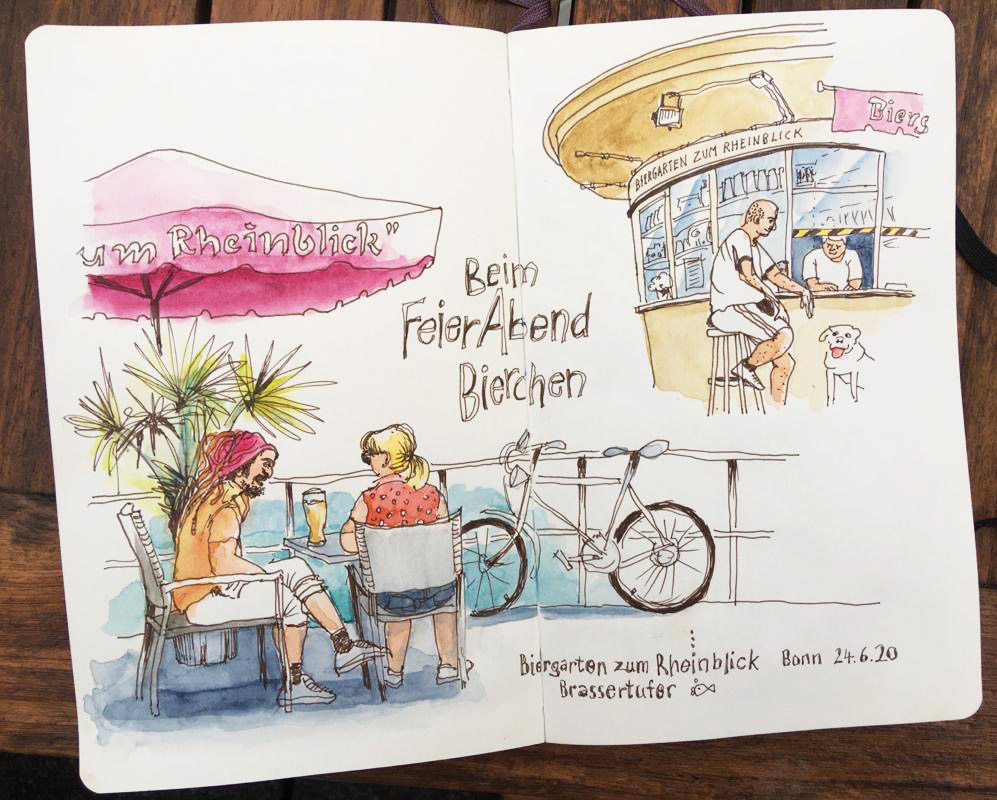 um Rheinblick"
Beim
FeierAbend
Bierchen
BIERGARTEN ZUM RHEINBLICK
Bierg
Biergarten zum Rheinblick Bonn 24.6.20
Brassertufer